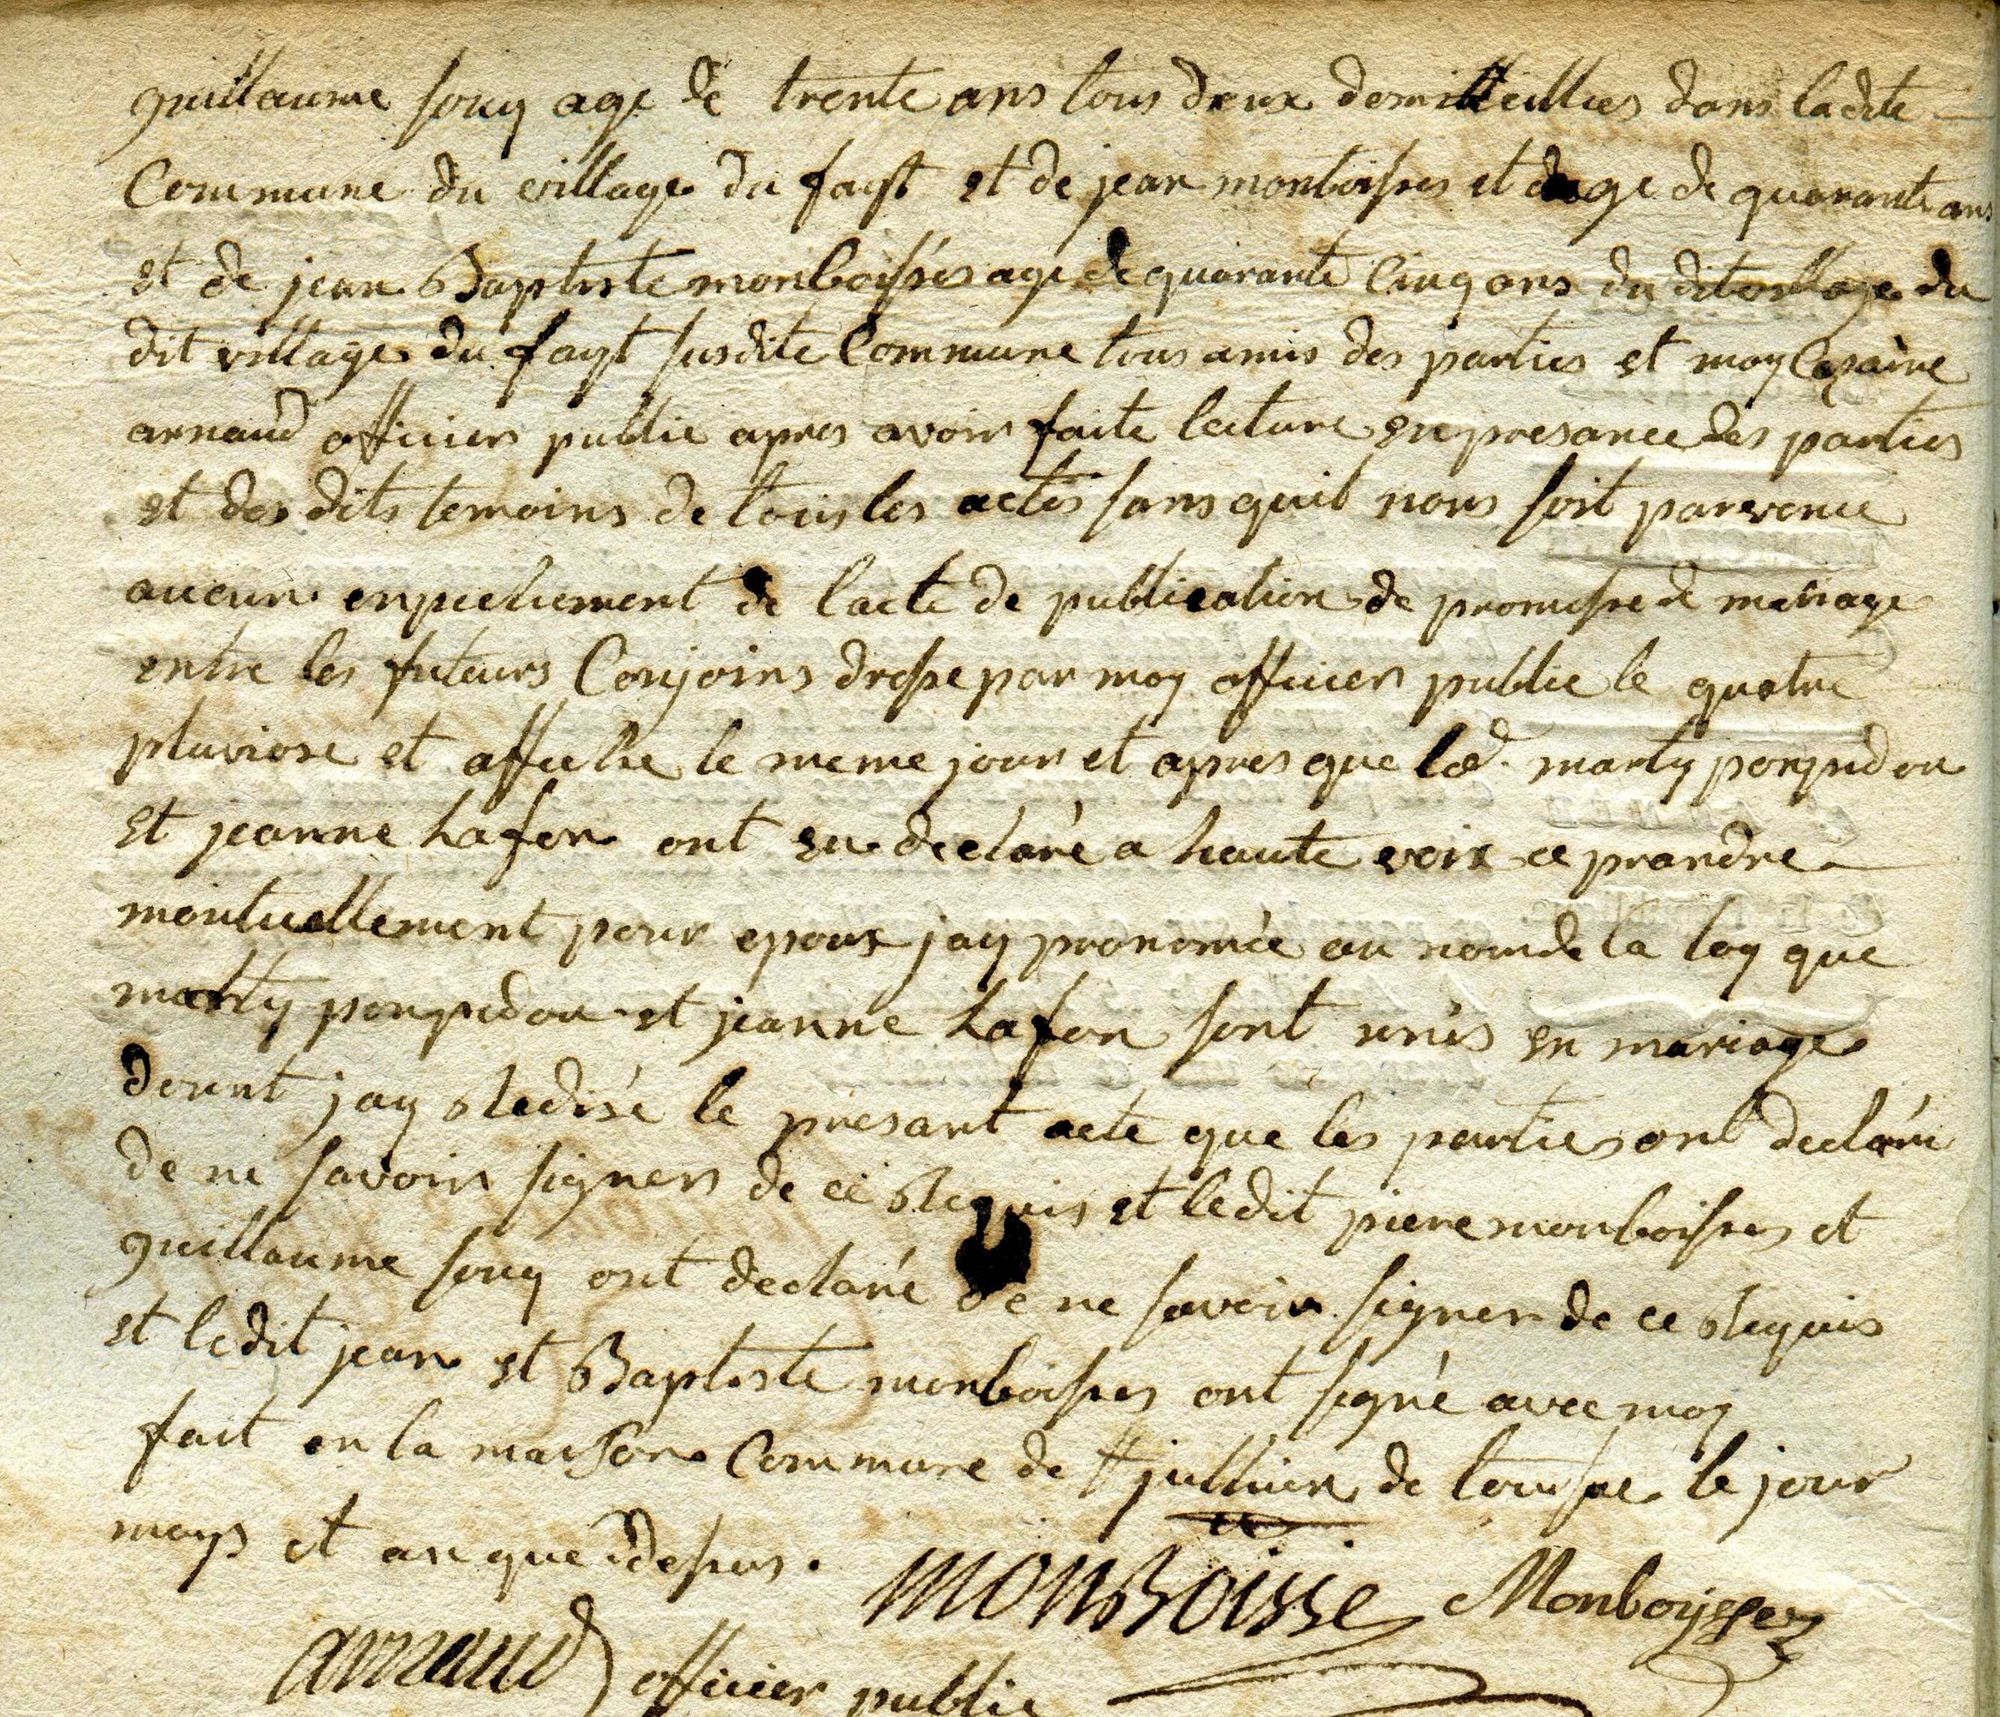 guillaume souq age de trente ans tous deux domicillies dans ladite
Commune du village du fayt et de jean monboisses et age de quarante ans
et de jean Baptiste monboisses age de quarante Cinq ans du dit village du
dit village du fayt susdite Commune tous amis des parties et moy Cezaire
arnaud officier public apres avoir faite lecture en presance des parties
et des dits temoins de tous les actes sans quil nous soit parvenue
aucun enpechement de lacte de publication de promesse de mariage
entre les futeurs Conjoins dresse par moy officier public le quatre
pluviose et affiche le meme jour et apres que led. marty pompidou
et jeanne Lafon ont eu declaré a haute voix ce prandre
moutuellement pour epoux jay pronomcé au nom de la loy que
marty pompidou et jeanne Lafon sont unis en mariage
dount jay redisé le presant acte que les parties ont declaré
de ne savoir signer de ce requis et ledit piere monboisses et
guillaume souq ont declaré de ne savoir signer de ce requis
et ledit jean et Baptiste monboisses ont signé avec moy
fait en la maison Commune de St jullien de le jour
moys et an que desus.
monBoisse Monboyssez
arnaud officier public